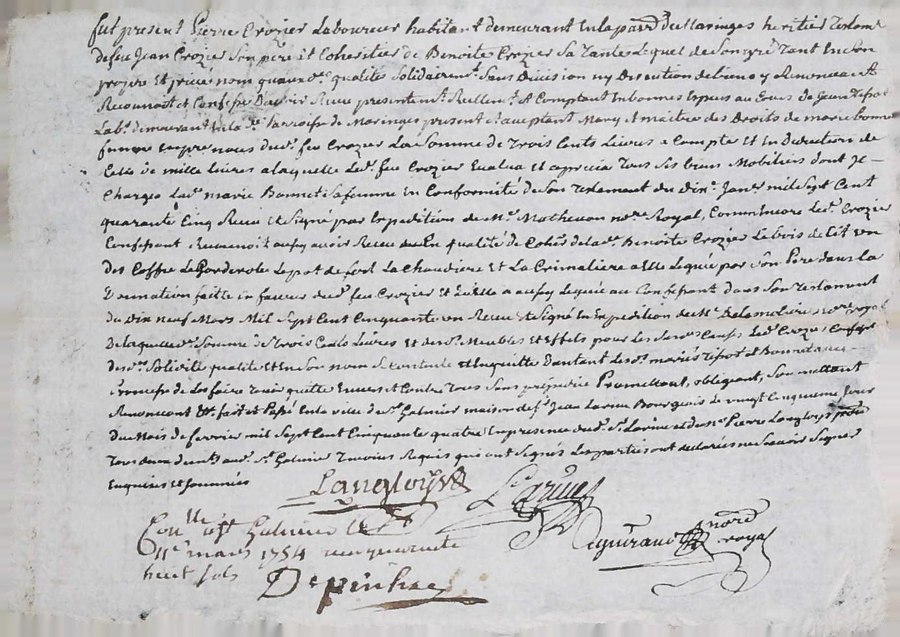 fut present Pierre Crozier Laboureur habitant demeurant en la parr.e de Maringes heritier Testam.
de feu Jean Crozier son pere et Coheritier de Benoite Crozier sa Tante Lequel de son gré Tant en son
propre et privé nom qu'aux d. qualités solidairem. sans Division ny Discution de biens y Renonceant
Reconnoit et Confesse D'avoir Receu presentem.t Reellem.t et Comptant En bonnes Especes au Cours de Jean
Lab.r demeurant en la d.e Parroisse de Maringes present et acceptant Mary et maitre des Droits de marie
feu Crozier La Somme de Trois Cents Livres a Compte et En Deduction de
Celle de mille Livres a laquelle Led. feu Crozier Evalua et aprecia Tous ses biens Mobiliers dont Il
Chargea Lad. marie Bonnet sa femme En Conformité de son Testament du Dix Janv.r mil sept Cent
quarante Cinq Receu Et signé par Expedition de M.e Mathevon no.re Royal, Comm'Encore Led. Crozier
Confessant avoir Receu en qualité de Coher. de lad. Benoite Crozier Le bois de Lit un
des Coffre Le Garderobe Le pot de fert La Chaudiere Et La Crimaliere a Elle Leguée par son Pere dans la
Donnation faitte En faveur dud. feu Crozier Et au Confessant dans son testament
du Dix neuf Mars Mil Sept Cent Cinquante un Receu et signé En Expedition de M.e Delamoliere no.re royal
De laquelle Somme de Trois Cents Livres et desd. Meubles et Effets pour les d. Causes Led. Crozier Confess.t
desd. qualité et En son nom se contente et En quitte D'autant Lesd. mariés et Bonnet avec
Promesse de Les faire Tenir quitte Envers et Contre Tous sans prejudice Promettant, obligeant, soumettant
Renonceant Et.c fait et Passé En la ville de S.t Galmier maison de s.r Jean Larive Bourgeois le vingt Cinquieme jour
du Mois de fevrier mil Sept Cent Cinquante quatre En presence dud. s.r Larive et de s.r Pierre Langloys
Tous deux dud. S.t Galmier Temoins Requis qui ont signés Les parties ont declarées ne scavoir signer
Enquises et sommées
Langloys Larive
Con.lle a S.t Galmier le
11.e mars 1754 receu quarante no.re
huit sols royal
Depinhac